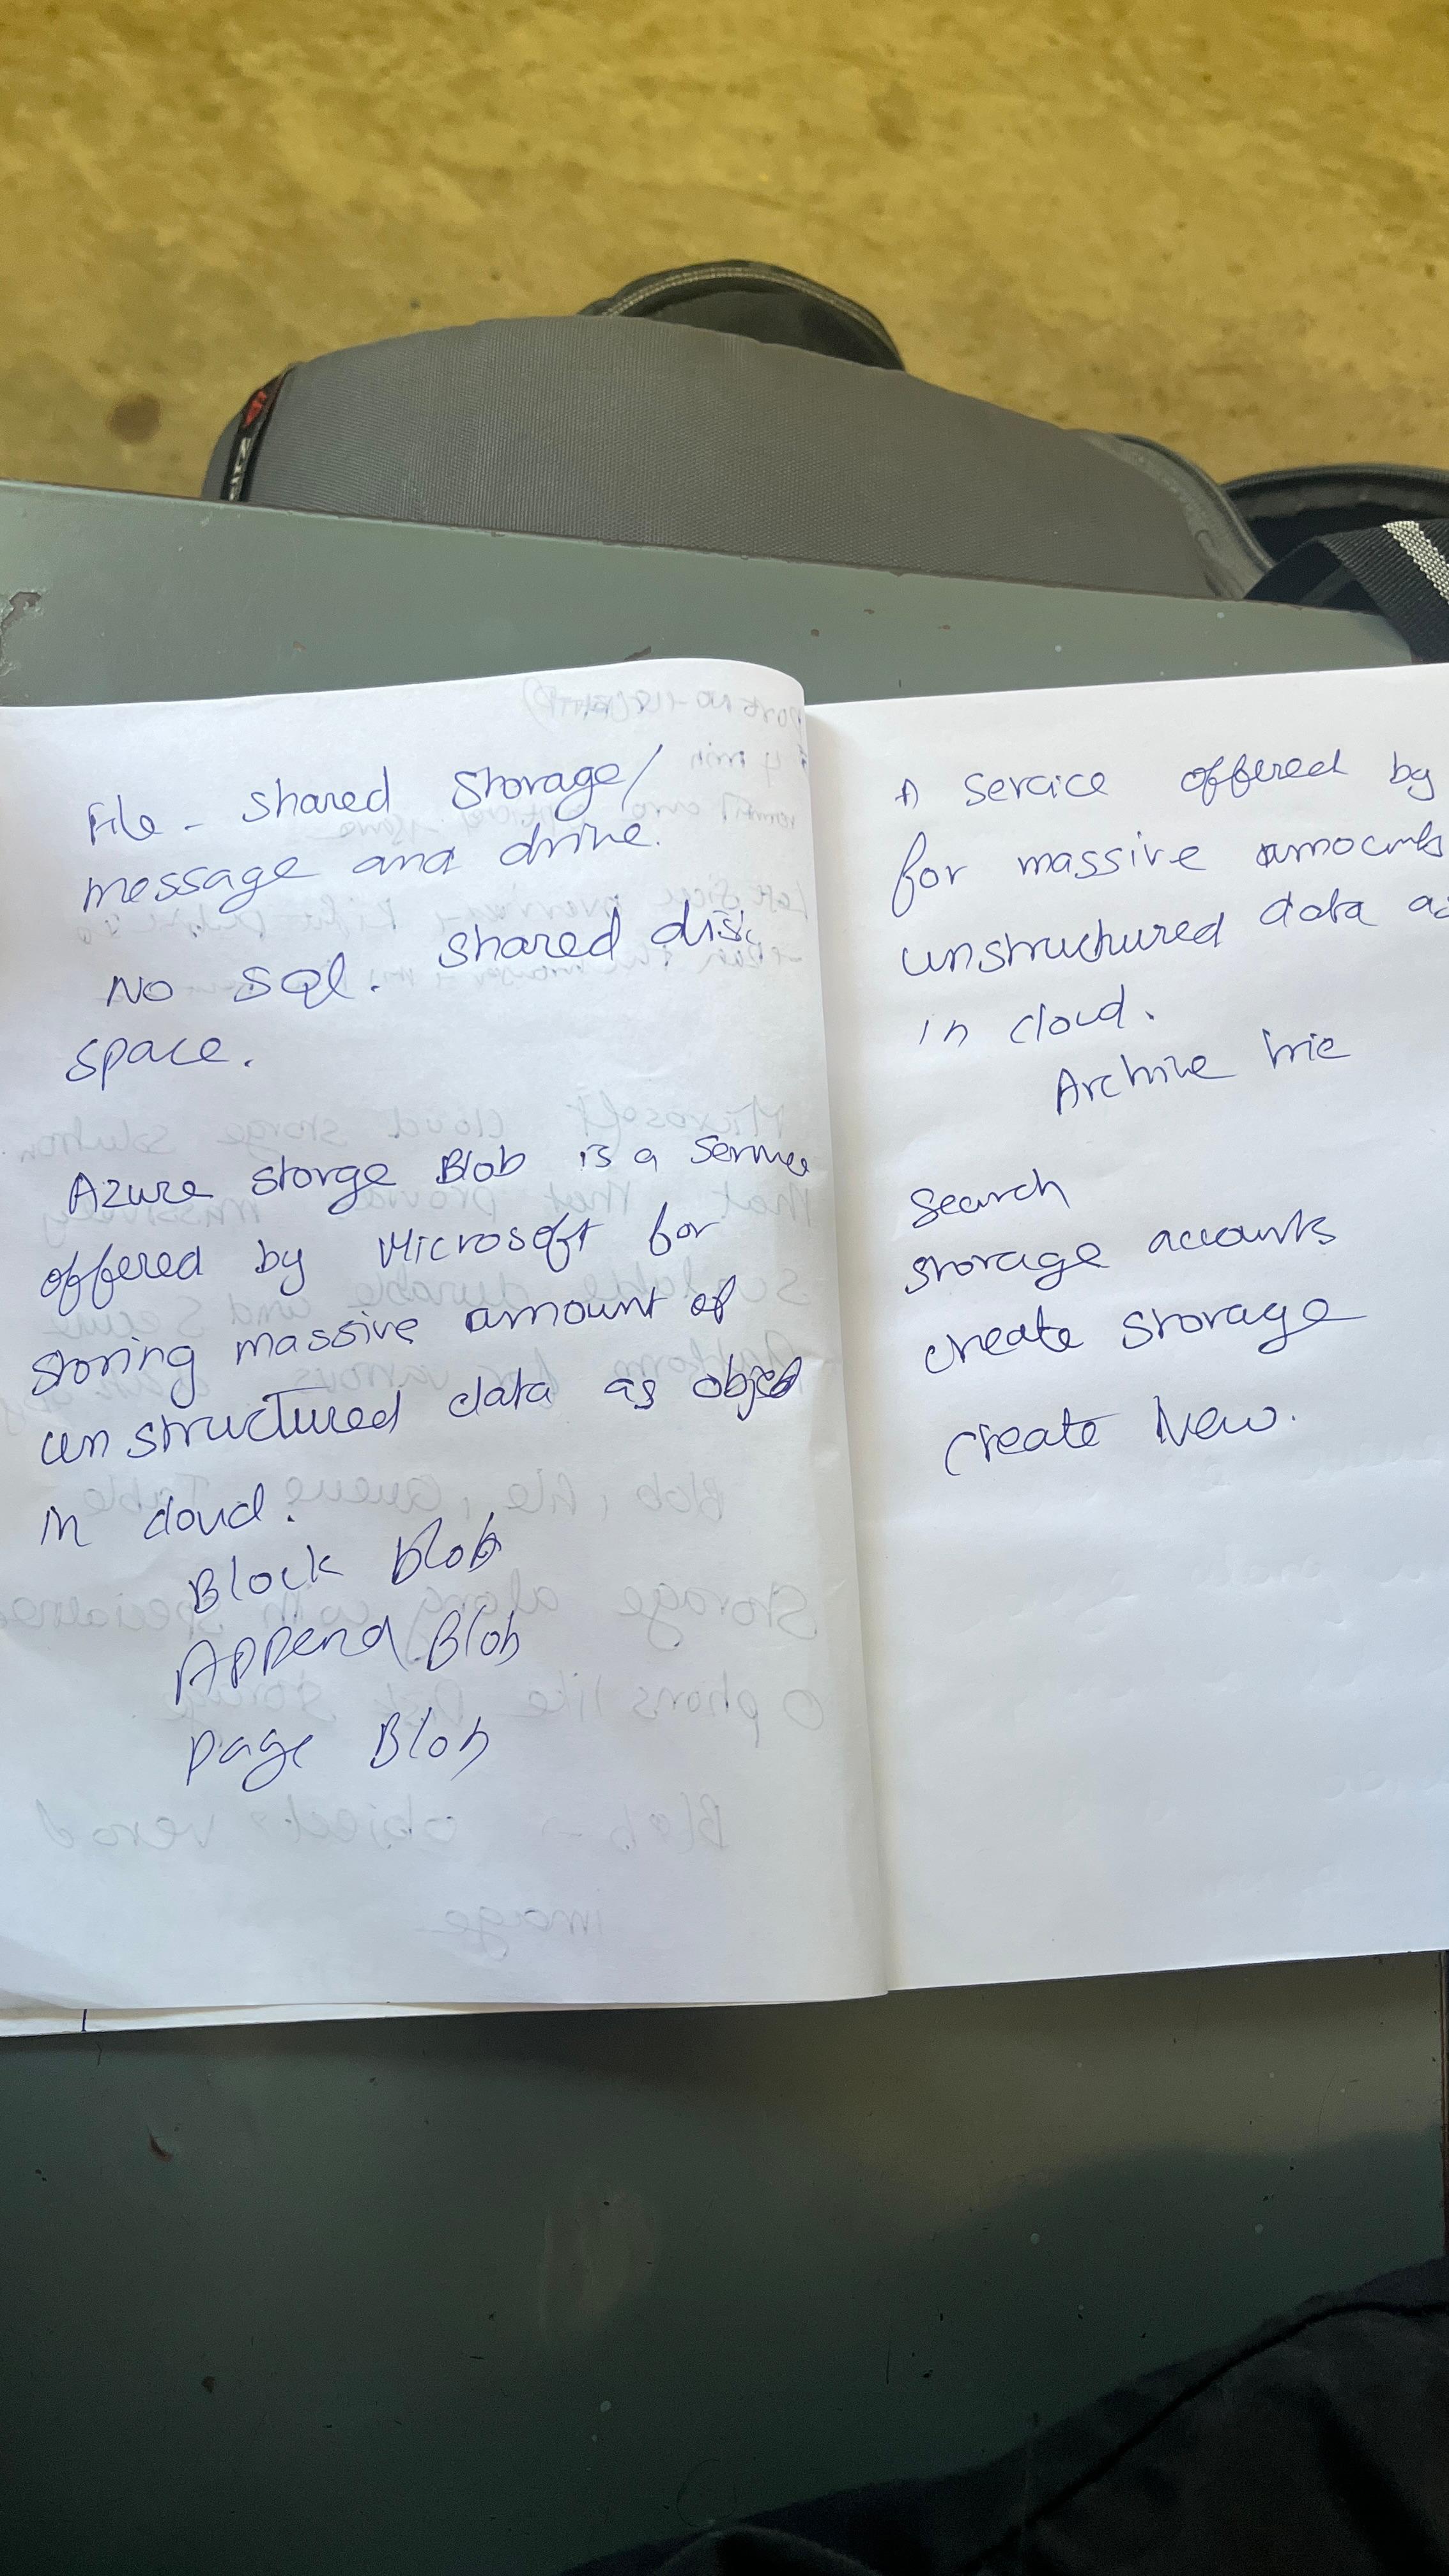 File - shared Storage/
message and drive.
No Sql. shared disk
space.
Azure storge Blob is a service
offered by Microsoft for
storing massive amount of
unstructured data as object
in cloud.
Block blob
Append Blob
page Blob
A Service offered by
for massive amounts
unstructured data as
in cloud.
Archive
Search
storage accounts
create storage
create New.